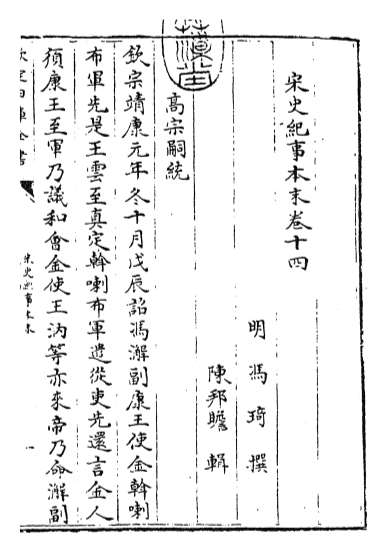 宋史紀事本末卷十四
明 馮琦 撰
陳邦瞻 輯
高宗嗣統
欽宗靖康元年冬十月戊辰詔馮澥副康王使金斡喇
布軍先是王雲至真定斡喇布軍遣從吏先還言金人
須康王至軍乃議和會金使王汭等亦來帝乃命澥副
欽定四庫全書
宋史紀事本末
一